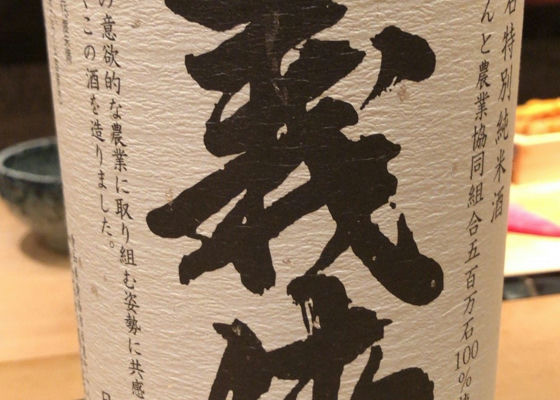 石特別純米酒
んと農業協同組合五百万石100%使
義侠
の意欲的な農業に取り組む姿勢に共感
くこの酒を造りました。